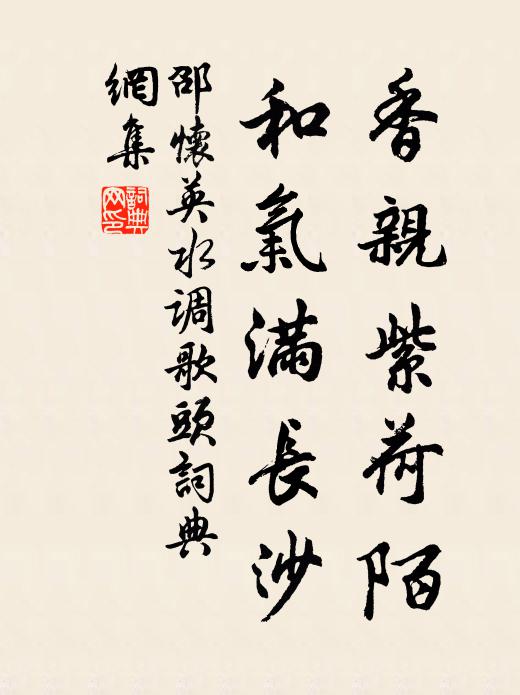 香親紫荷陌
和氣滿長沙
邵懷英水調歌頭詞典
網集
詞典網印